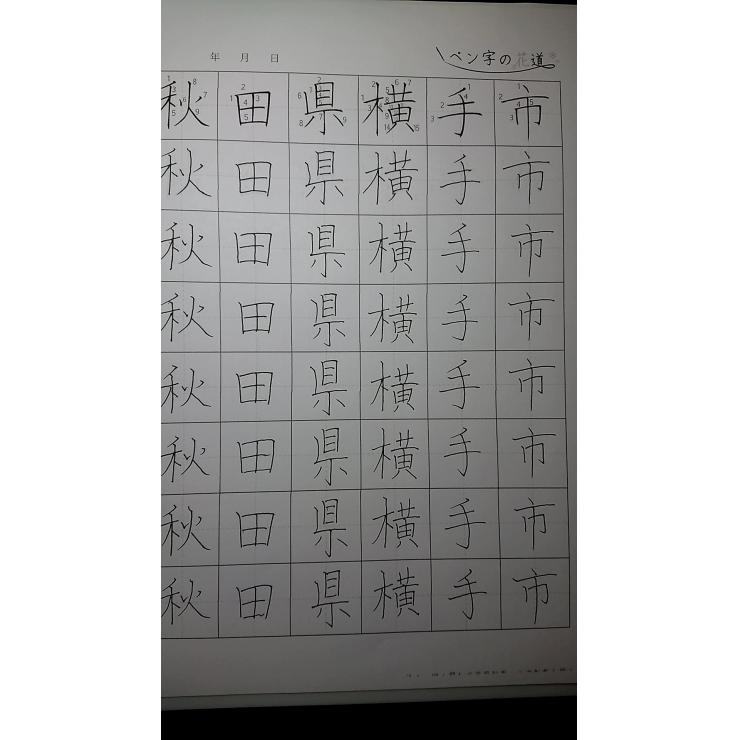 年 月 日
ペン字の花道
秋田県横手市
秋田県横手市
秋田県横手市
秋田県横手市
秋田県横手市
秋田県横手市
秋田県横手市
秋田県横手市